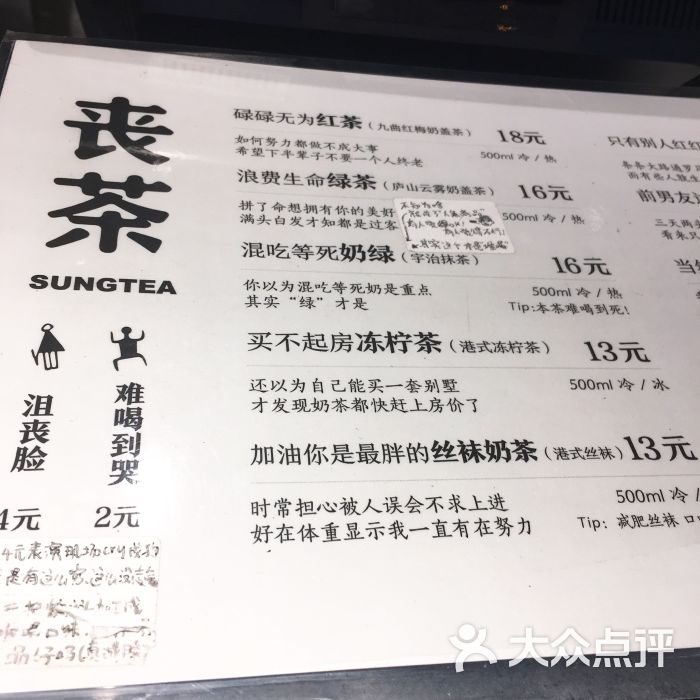 丧茶
SUNGTEA
沮丧脸
难喝到哭
4元
2元
碌碌无为红茶（九曲红梅奶盖茶） 18元
如何努力都做不成大事
希望下半辈子不要一个人终老
500ml 冷 / 热
浪费生命绿茶（庐山云雾奶盖茶） 16元
拼了命想拥有你的美好
满头白发才知都是过客
500ml 冷 / 热
混吃等死奶绿（宇治抹茶） 16元
你以为混吃等死奶是重点
其实“绿”才是
500ml 冷 / 热
Tip:本茶难喝到死!
买不起房冻柠茶（港式冻柠茶） 13元
还以为自己能买一套别墅
才发现奶茶都快赶上房价了
500ml 冷 / 冰
加油你是最胖的丝袜奶茶（港式丝袜） 13元
时常担心被人误会不求上进
好在体重显示我一直有在努力
500ml 冷 /
Tip: 减肥丝袜 口
只有别人红红
前男友过
三天两头
看来只
当你
大众点评